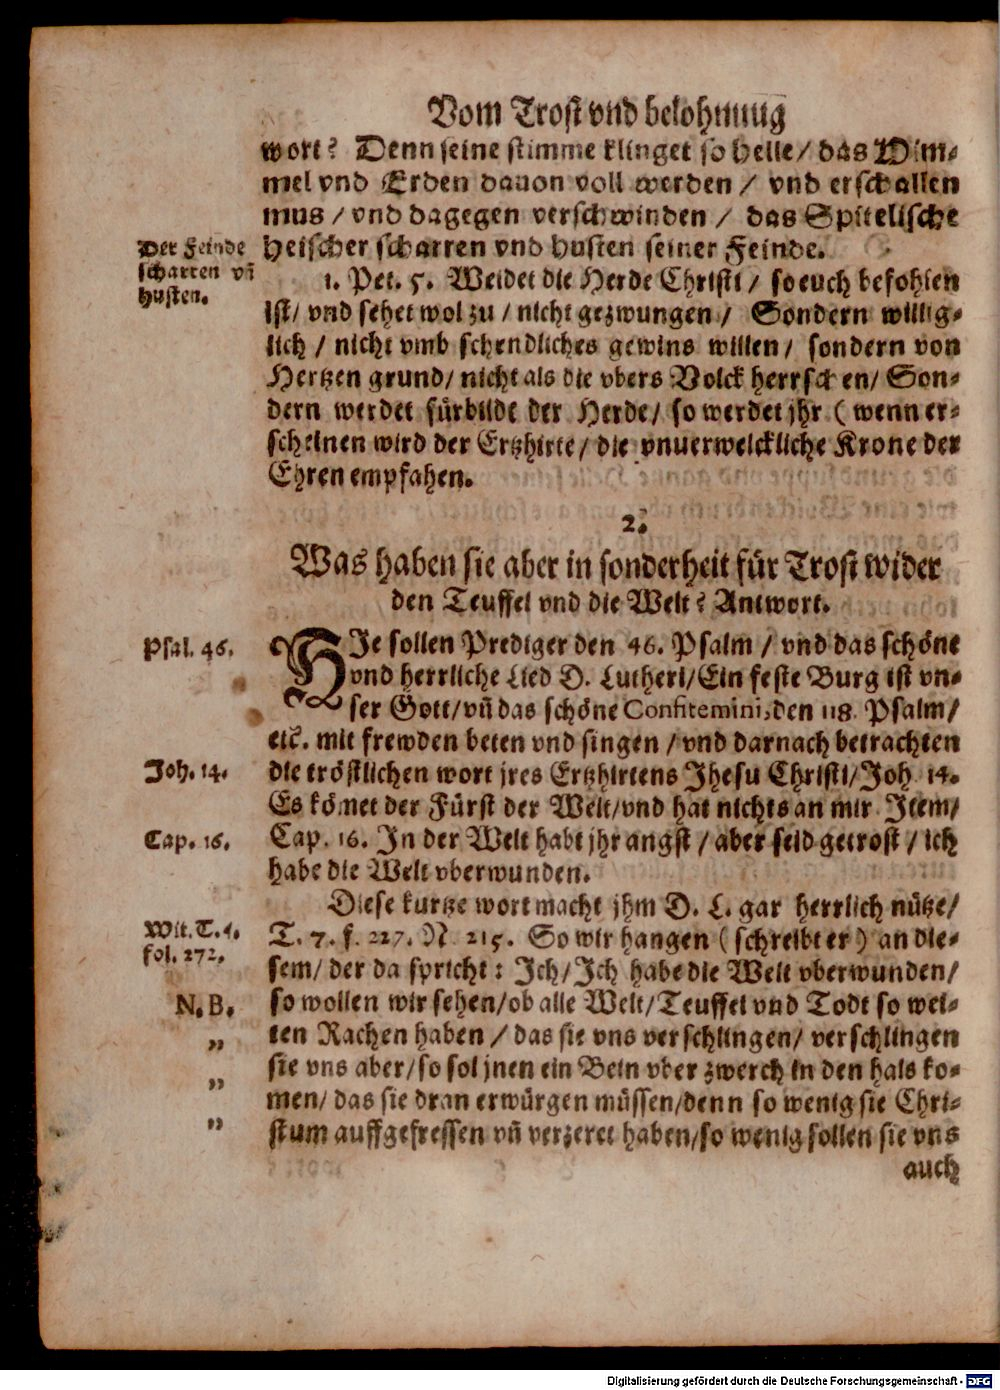 Vom Trost vnd belohnung
wort? Denn seine stimme klinget so helle/ das Him-
mel vnd Erden dauon voll werden / vnd erschallen
mus / vnd dagegen verschwinden / das Spitelische
Der Feinde
scharren vñ
husten.
heischer scharren vnd husten seiner Feinde.
1. Pet. 5. Weidet die Herde Christi / so euch befohlen
ist/ vnd sehet wol zu / nicht gezwungen / Sondern willig-
lich / nicht vmb schendliches gewins willen / sondern von
Hertzen grund/ nicht als die vbers Volck herrschen/ Son-
dern werdet fürbilde der Herde/ so werdet jhr ( wenn er-
scheinen wird der Ertzhirte / die vnuerwelckliche Krone der
Ehren empfahen.
2.
Was haben sie aber in sonderheit für Trost wider
den Teuffel vnd die Welt? Antwort.
Psal. 46.
HIe sollen Prediger den 46. Psalm / vnd das schöne
vnd herrliche Lied D. Lutheri/ Ein feste Burg ist vn-
ser Gott/ vñ das schöne Confitemini, den 118. Psalm/
etc. mit frewden beten vnd singen / vnd darnach betrachten
Joh. 14.
die tröstlichen wort jres Ertzhirtens Jhesu Christi/ Joh. 14.
Es kömet der Fürst der Welt/ vnd hat nichts an mir. Item/
Cap. 16.
Cap. 16. In der Welt habt jhr angst / aber seid getrost / ich
habe die Welt vberwunden.
Diese kurtze wort macht jhm D. L. gar herrlich nütze/
Wit. T. 1.
fol. 272.
T. 7. f. 227. N. 215. So wir hangen ( schreibt er ) an die-
sem/ der da spricht: Ich/ Ich habe die Welt vberwunden/
N. B.
so wollen wir sehen/ ob alle Welt/ Teuffel vnd Todt so wei-
ten Rachen haben / das sie vns verschlingen/ verschlingen
"
sie vns aber/ so sol jnen ein Bein vber zwerch in den hals ko-
"
men/ das sie dran erwürgen müssen/ denn so wenig sie Chri-
"
stum auffgefressen vñ verzeret haben/ so wenig sollen sie vns
auch
Digitalisierung gefördert durch die Deutsche Forschungsgemeinschaft - DFG